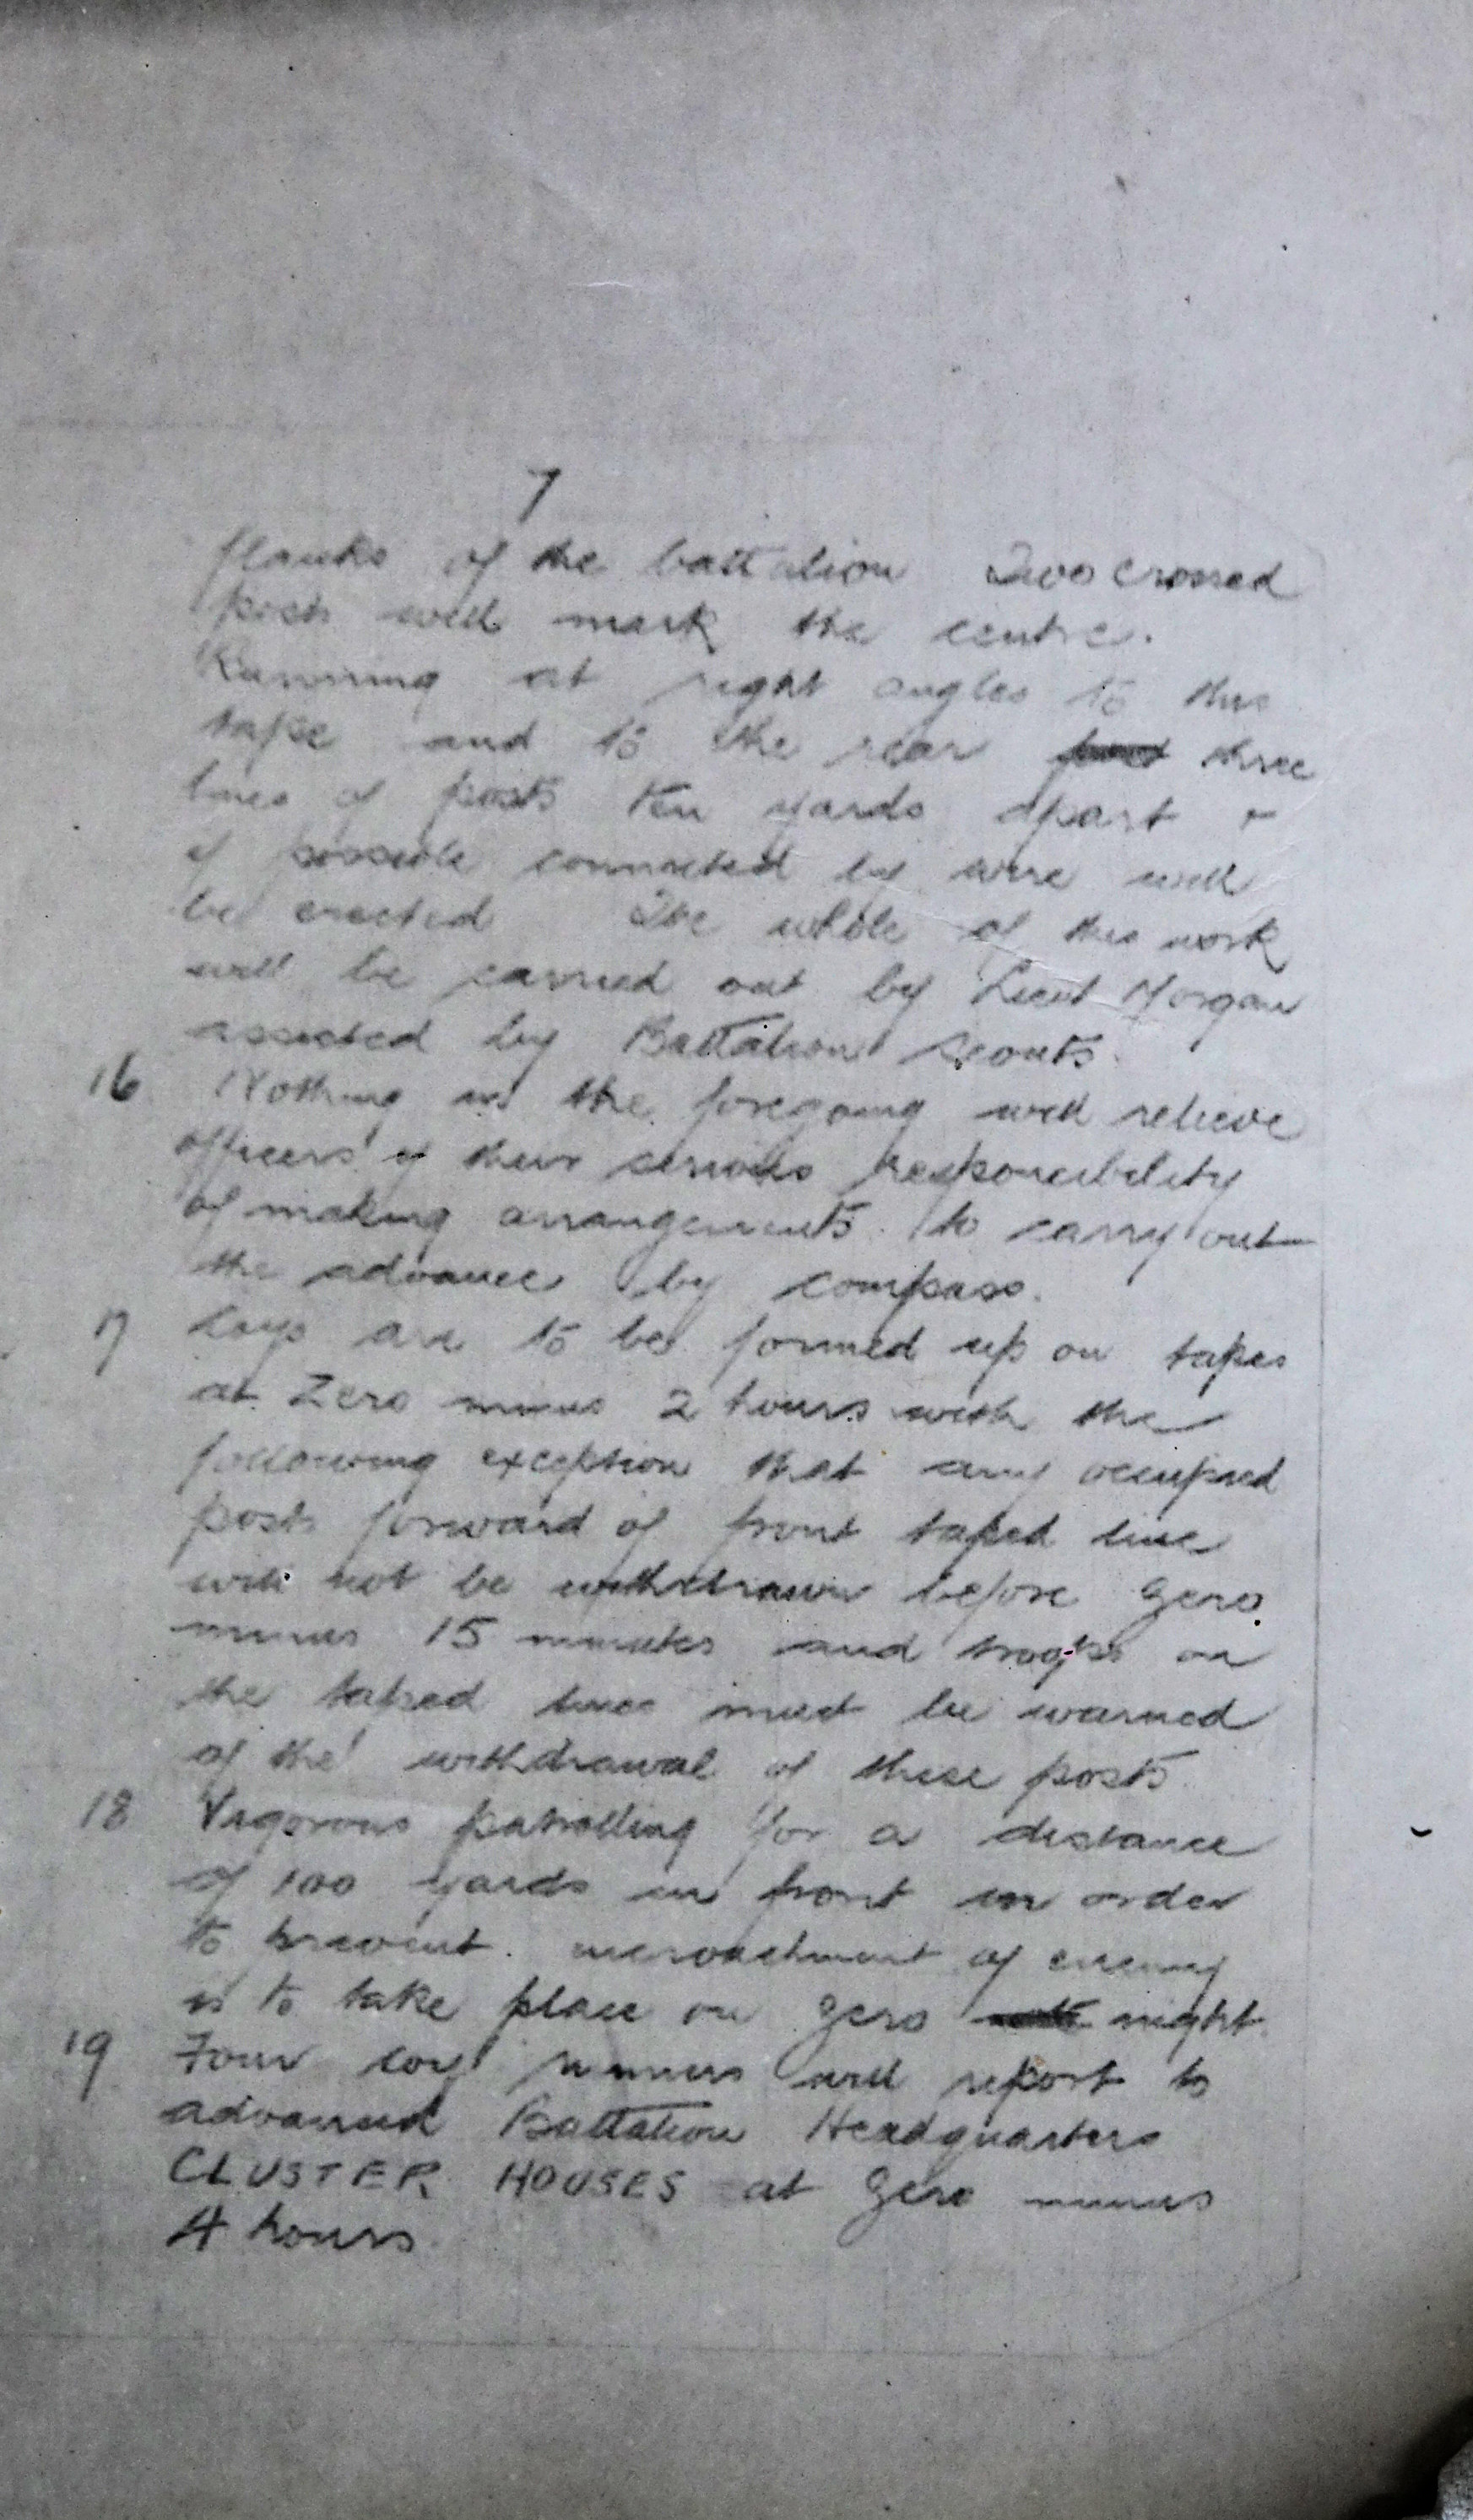 7
flanks of the battalion Two crossed
posts will mark the centre.
Running at right angles to this
tape and to the rear three
lines of posts ten yards apart &
if possible connected by wire will
be erected The whole of this work
will be carried out by Lieut Morgan
assisted by Battalion Scouts.
16 Nothing in the foregoing will relieve
officers of their serious responsibility
of making arrangements to carry out
the advance by compass.
17 Coys are to be formed up on tapes
at Zero minus 2 hours with the
following exception that any occupied
posts forward of front taped line
will not be withdrawn before Zero
minus 15 minutes and troops on
the taped lines must be warned
of the withdrawal of these posts
18 Vigorous patrolling for a distance
of 100 yards in front in order
to prevent encroachment of enemy
is to take place on Zero night.
19 Four coy runners will report to
advanced Battalion Headquarters
CLUSTER HOUSES at Zero minus
4 hours.